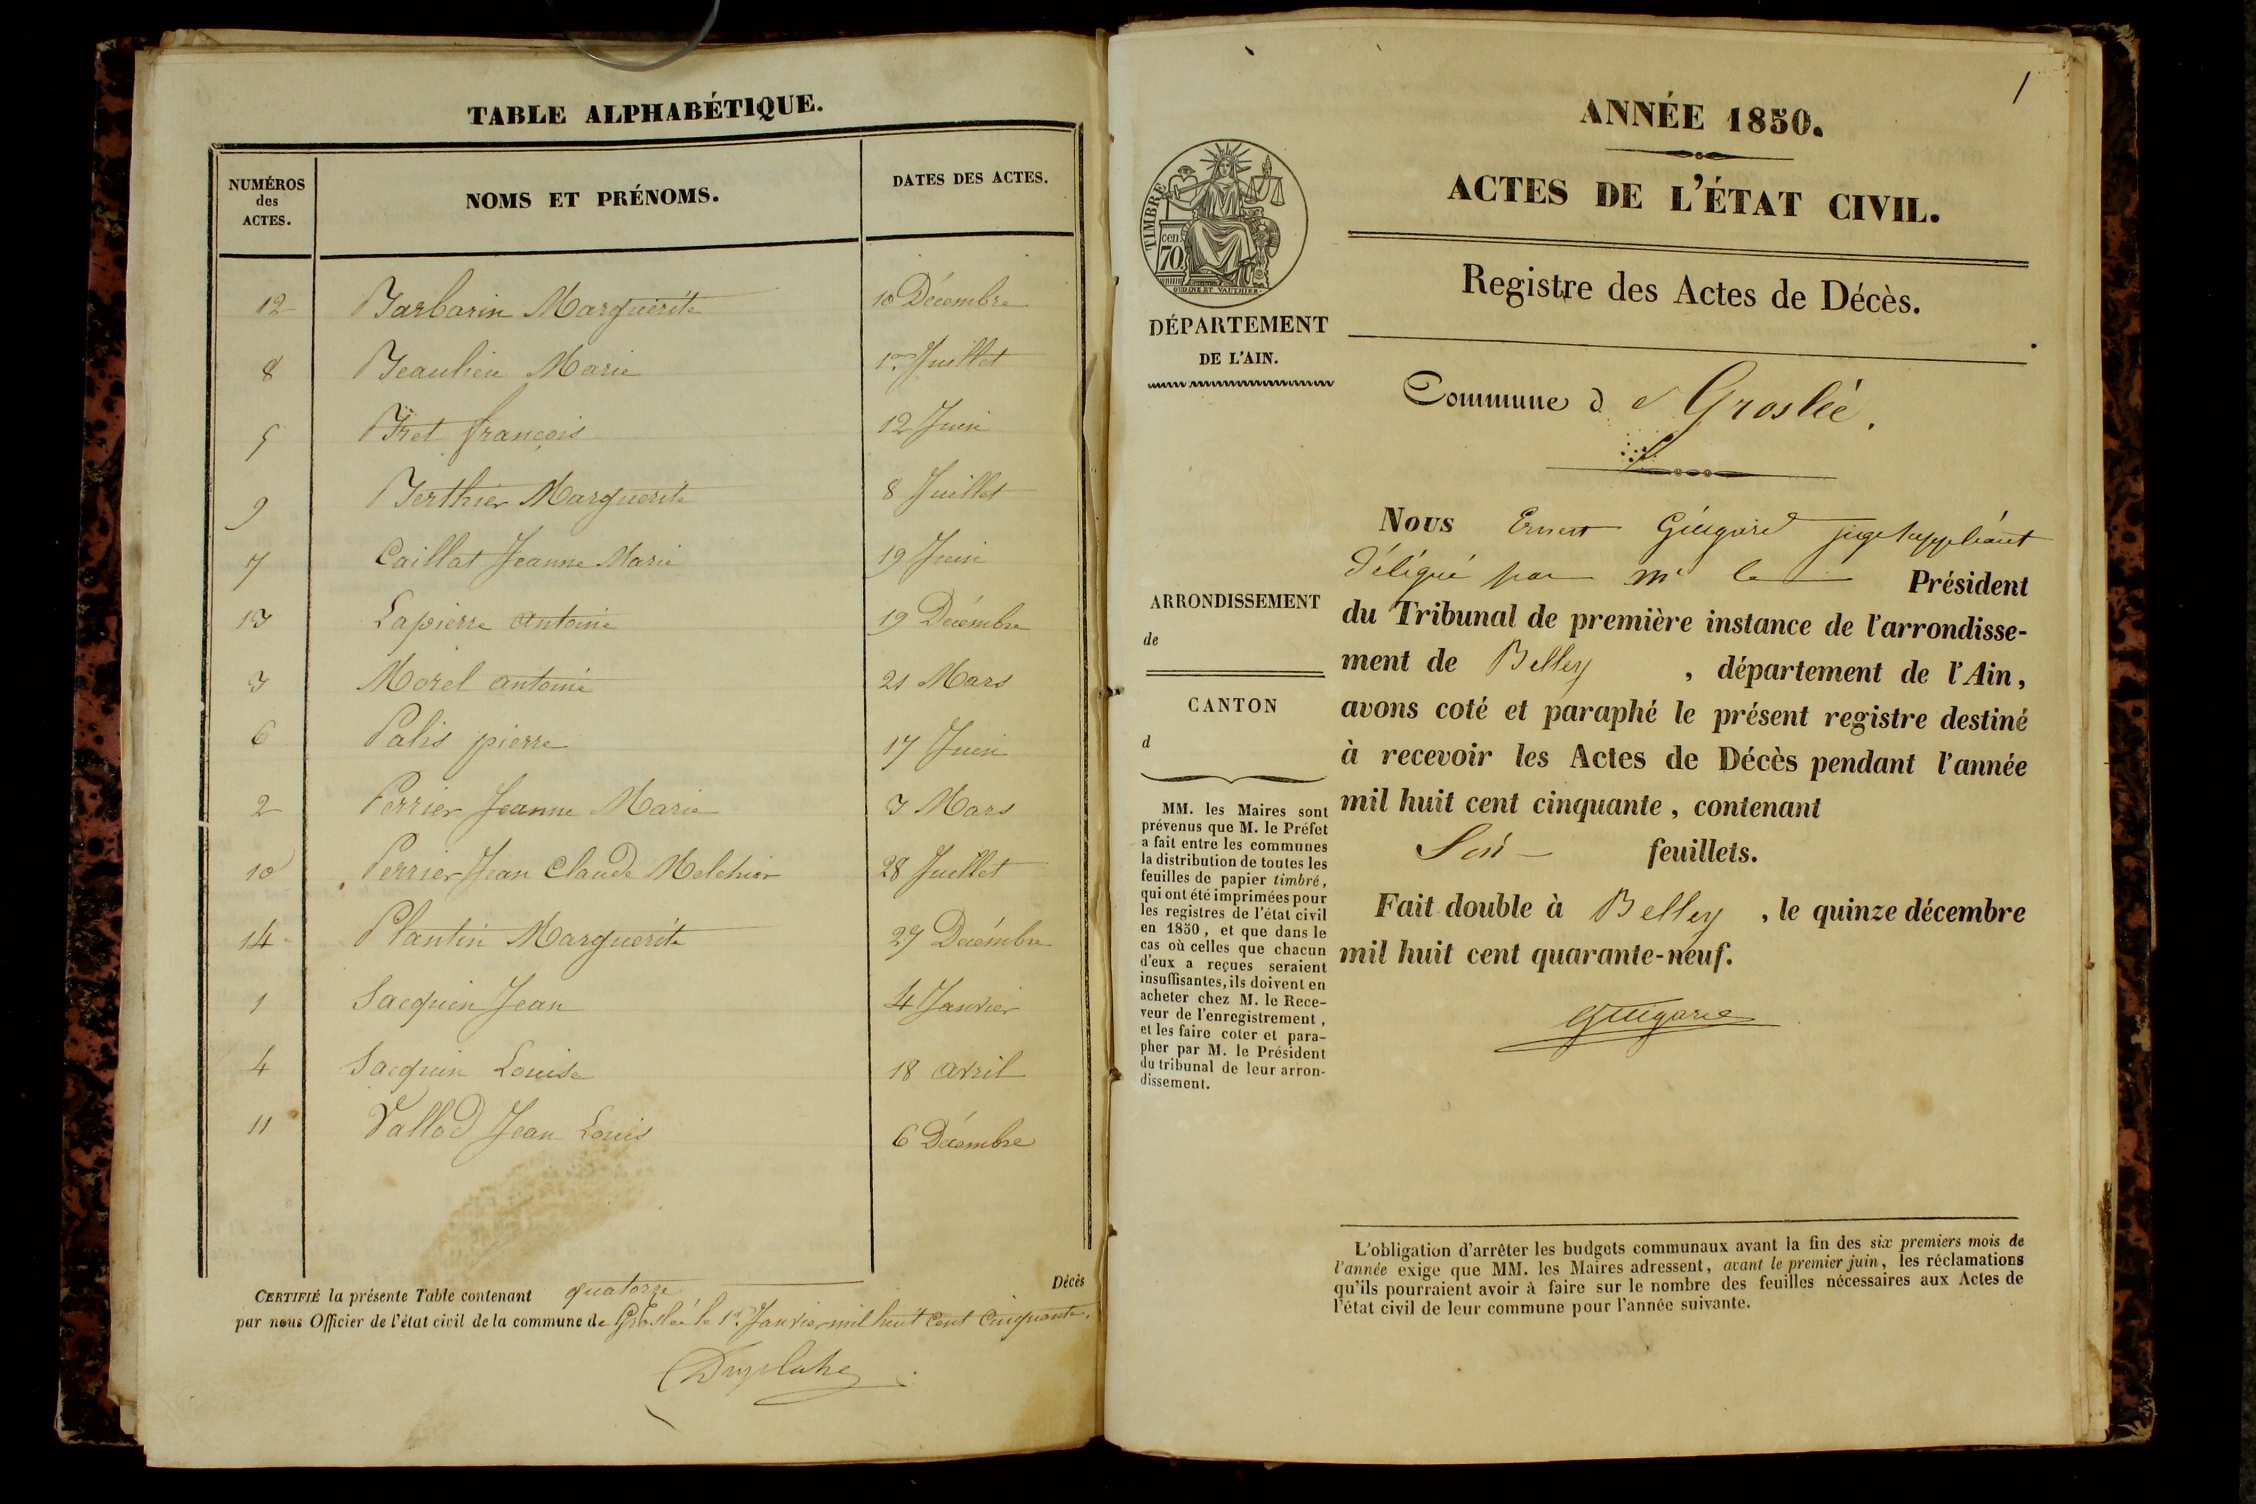 TABLE ALPHABÉTIQUE.
NUMÉROS des ACTES. NOMS ET PRÉNOMS. DATES DES ACTES.
12 Barbarin Marguerite 10 Décembre
8 Beaulieu Marie 1er Juillet
5 Bret françois 12 Juin
9 Berthier Marguerite 8 Juillet
7 Caillat Jeanne Marie 19 Juin
13 Lapierre antoine 19 Décembre
3 Morel antoine 21 Mars
6 Palis pierre 17 Juin
2 Perrier Jeanne Marie 3 Mars
10 Perrier Jean Claude Melchior 28 Juillet
14 Plantin Marguerite 27 Décembre
1 Sacquin Jean 4 Janvier
4 Sacquin Louise 18 avril
11 Vallod Jean Louis 6 Décembre
CERTIFIÉ la présente Table contenant quatorze Décès
par nous Officier de l'état civil de la commune de Groslée le 1er Janvier mil huit cent cinquante.
1
ANNÉE 1850.
ACTES DE L'ÉTAT CIVIL.
TIMBRE
cen.
70
OUDINÉ ET VAUTHIER
DÉPARTEMENT
DE L'AIN.
Registre des Actes de Décès.
Commune d e Groslée.
ARRONDISSEMENT
de
CANTON
d
MM. les Maires sont
prévenus que M. le Préfet
a fait entre les communes
la distribution de toutes les
feuilles de papier timbré,
qui ont été imprimées pour
les registres de l'état civil
en 1850, et que dans le
cas où celles que chacun
d'eux a reçues seraient
insuffisantes, ils doivent en
acheter chez M. le Rece-
veur de l'enregistrement,
et les faire coter et para-
pher par M. le Président
du tribunal de leur arron-
dissement.
Nous Ernest Guigard juge suppléant
délégué par Mr le Président
du Tribunal de première instance de l'arrondisse-
ment de Belley , département de l'Ain,
avons coté et paraphé le présent registre destiné
à recevoir les Actes de Décès pendant l'année
mil huit cent cinquante, contenant
feuillets.
Fait double à Belley , le quinze décembre
mil huit cent quarante-neuf.
Guigard
L'obligation d'arrêter les budgets communaux avant la fin des six premiers mois de
l'année exige que MM. les Maires adressent, avant le premier juin, les réclamations
qu'ils pourraient avoir à faire sur le nombre des feuilles nécessaires aux Actes de
l'état civil de leur commune pour l'année suivante.